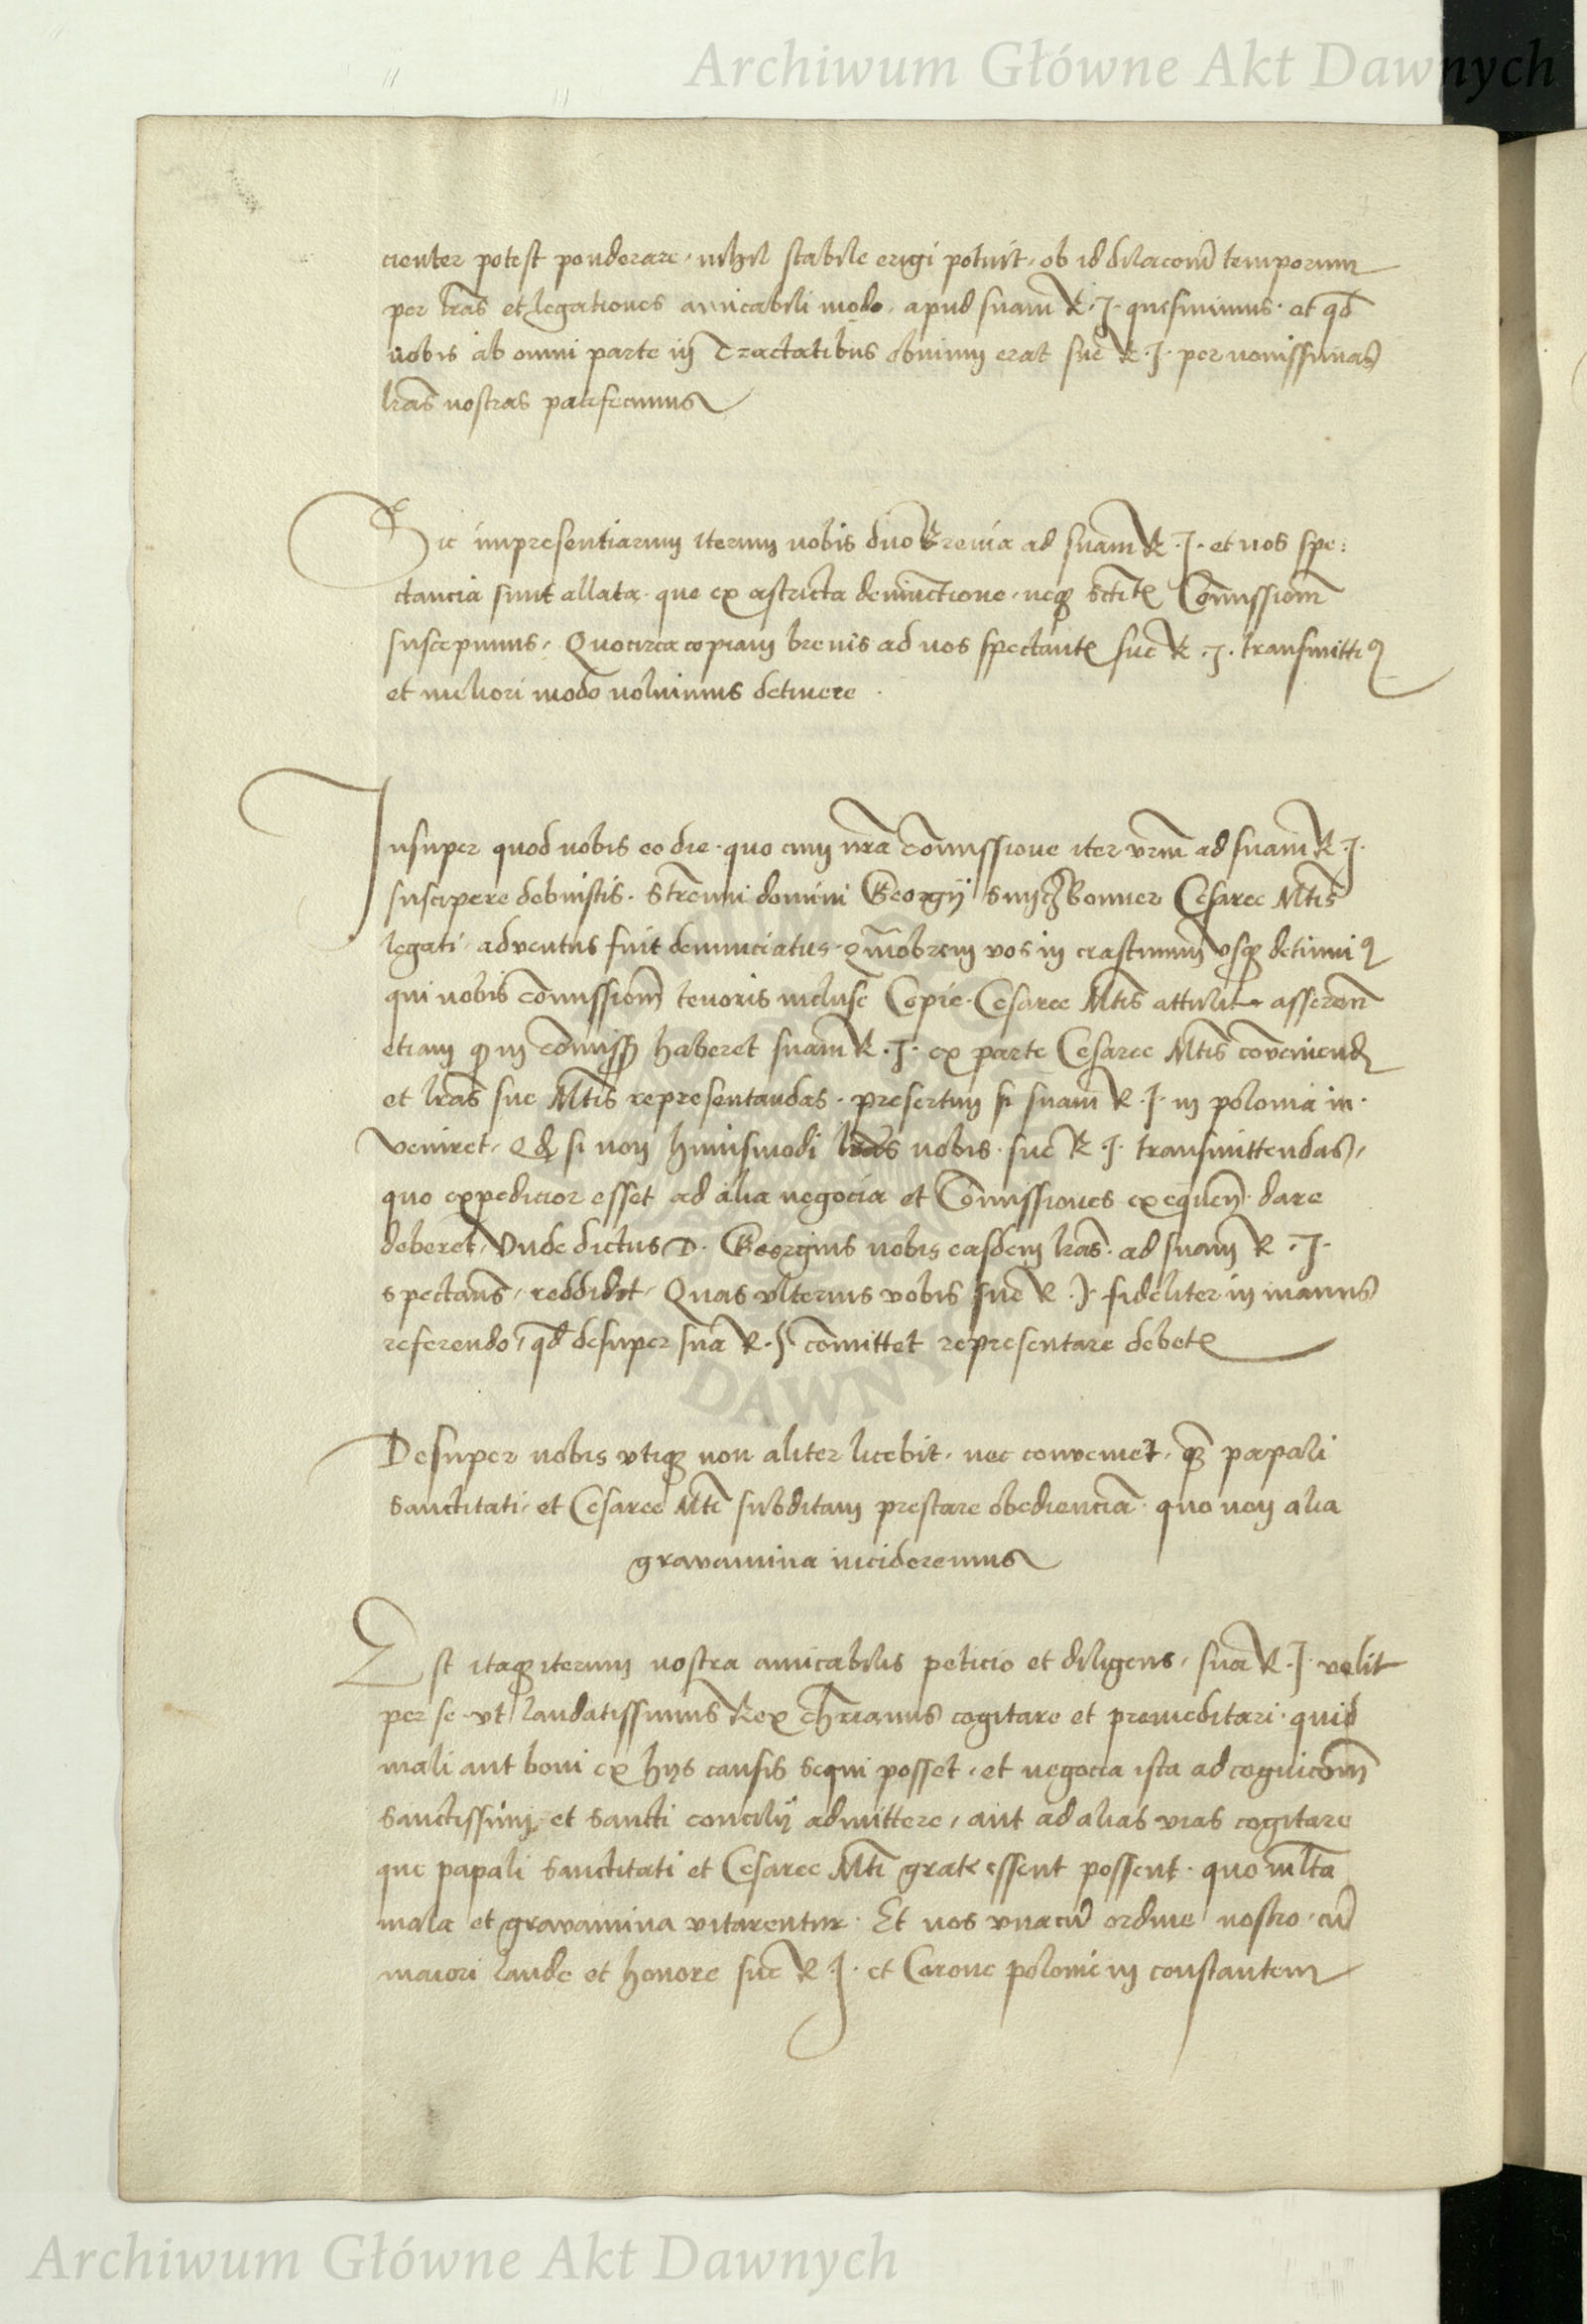 Archiwum Główne Akt Dawnych
cienter potest ponderare, nihil stabile erigi potuit, ob id dilacionē temporum
per lr̄as et legationes amicabili modo, apud suam R. J. quesiuimus. et qd̄
nobis ab omni parte in Tractatibus obuium erat sue R. J. per nouissimas
lr̄as nostras patefecimus
Sic impresentiarum iterum nobis duo Breuia ad suam R. J. et nos spe:
ctancia sunt allata. que ex astricta deuinctione, neqꝫ Comissionem
suscepimus, Quocirca copiam breuis ad nos spectantꝭ sue R. J. transmitti
et meliori modo noluimus detinere.
Insuper quod nobis eo die, quo cum nr̄a Cōmissione iter vr̄m ad suam R. J.
suscipere debuistis. Strenui domini Georgij Cesaree Mtis̄
legati, aduentus fuit denunciatus, vos in crastinum vsqꝫ
qui nobis cōmissionē tenoris incluse Copie, Cesaree Mtis̄ attulit, asserens
etiam haberet suam R. J. ex parte Cesaree Mtis̄ conueniend
et lr̄as sue Mtis̄ representandas, presertim si suam R. J. in polonia in.
veniret, si non huiusmodi lr̄as nobis. sue R. J. transmittendas,
quo expedicior esset ad alia negocia et Cōmissiones dare
deberet, Vnde dictus D. Georgius nobis easdem lr̄as. ad suam R. J.
spectan̄s, reddidit, Quas vlterius vobis sue R. J. fideliter in manus
referendo, qd̄ desuper sua R. J. cōmittet representare debetꝭ
Desuper nobis vtiqꝫ non aliter licebit, nec conueniet, qꝫ papali
sanctitati, et Cesaree Mtī subditam prestare obedienciā. quo non alia
grauamina incideremus
Est itaqꝫ iterum nostra amicabilis peticio et diligens, sua R. J. velit
per se vt laudatissimus Rex chr̄ianus cogitare et premeditari. quid
mali aut boni ex hijs causis sequi posset, et negocia ista ad cognicōnem
sanctissimi, et sancti concilij admittere, aut ad alias vias cogitare
que papali sanctitati et Cesaree Mtī grate essent possent. quo ml̄ta
mala et grauamina vitarentur. Et nos vnacū ordine nostro, cū
maiori laude et honore sue R. J. et Corone polonie in constantem
Archiwum Główne Akt Dawnych